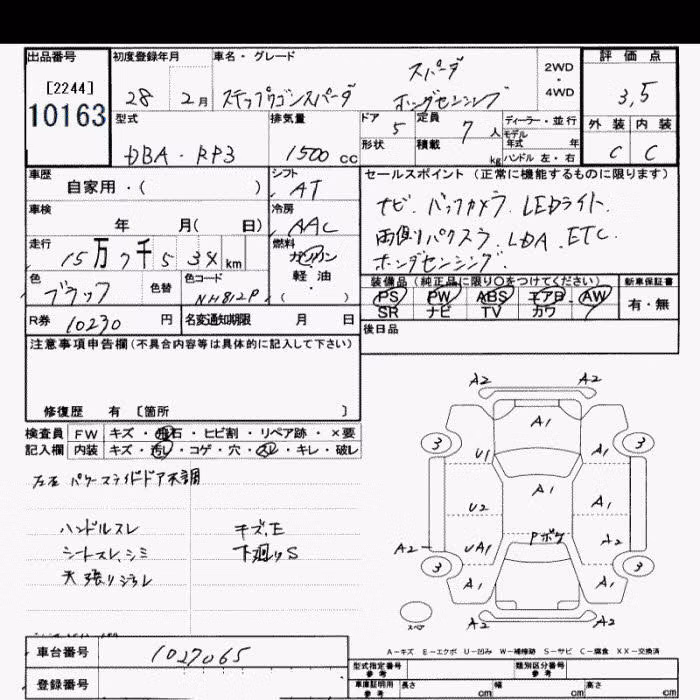 出品番号 初度登録年月 車名・グレード 評価点
[2244] スパーダ 2WD
10163 28 2月 ステップワゴンスパーダ ホンダセンシング ・ 4WD 3,5
型式 排気量 ドア 5 定員 7 人 ディーラー・並行 外装 内装
モデル年式 年
DBA・RP3 1500 cc 形状 積載 kg ハンドル 左・右 C C
車歴 シフト セールスポイント(正常に機能するものに限ります)
自家用・( ) AT
車検 冷房 ナビ. バックカメラ. LEDライト.
年 月( 日) AAC 両側パワスラ. LDA. ETC.
走行 燃料 ホンダセンシング.
15万7千534km ガソリン
色 色替 色コード 軽・油 装備品(純正品に限り○をつけてください) 新車保証書
ブラック NH812P ( ) PS PW ABS エアB AW 有・無
SR ナビ TV カワ
R券 10230 円 名変通知期限 月 日 後日品
注意事項申告欄(不具合内容等は具体的に記入して下さい)
修復歴 有 [箇所 ]
検査員 FW キズ・飛石・ヒビ割・リペア跡・×要
記入欄 内装 キズ・汚レ・コゲ・穴・スレ・キレ・破レ
左右 パワースライドドア不調
ハンドルスレ キズ、E
シートスレ、シミ 下廻りS
天張りジワレ
A2 A2
A1
3 3
U1
A1
U2 A1
Pボケ
A2 UA1 A2
3 3
A1 A1
スペア A2 A2
A－キズ E－エクボ U－凹み W－補修跡 S－サビ C－腐食 XX－交換済
車台番号 1027065
型式指定番号 参考 類別区分番号 参考
登録番号 車庫証明用 参考 長さ cm 幅 cm 高さ cm